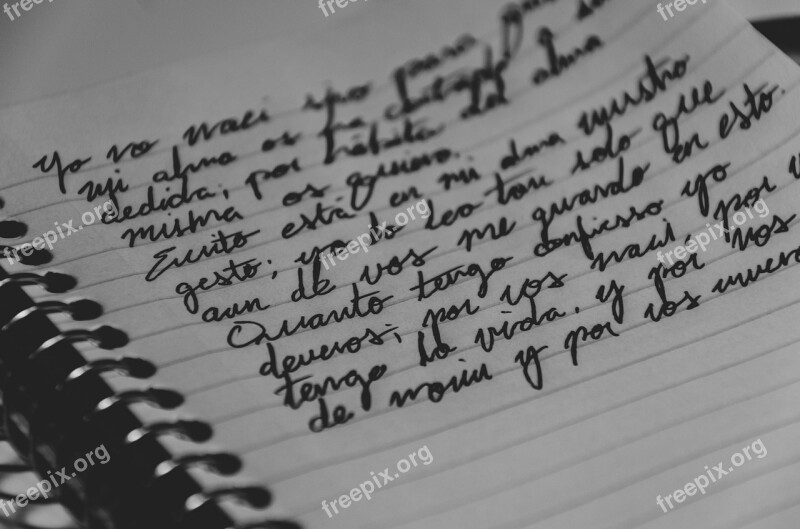 yo no naci sino para
mi alma os ha cortado a su
medida; por hábito del alma
misma os quiero.
Escrito está en mi alma vuestro
gesto; yo lo leo tan solo que
aun de vos me guardo en esto.
Quanto tengo confiesso yo
deveros; por vos naci, por
tengo la vida, y por vos
de morir y por vos muero
freepix.org
freepix.org
freepix.org
freepix.org
freepix.org
freepix.org
freepix.org
freepix.org
freepix.org